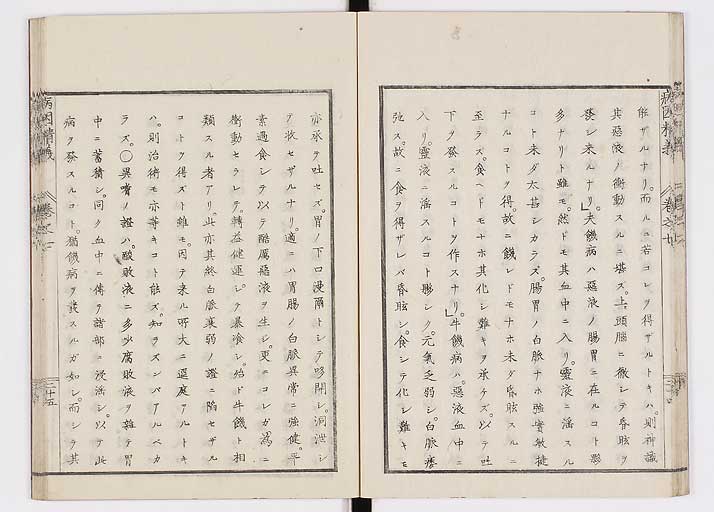 能ザルナリ。而ルニ若コレヲ得ザルトキハ。則神識
其惡液ノ衝動スルニ堪ズ。上。頭腦ニ徹シテ昏眩ヲ
發シ来ルナリ」夫饑病ハ惡液ノ腸胃ニ在ルコト
多ナリト雖モ。然ドモ其血中ニ入リ。靈液ニ混スル
コト未ダ太甚シカラズ。腸胃ノ白脈ナホ強實敏捷
ナルコトヲ得。故ニ饑レドモナホ未ダ昏眩スルニ
至ラズ。食ヘドモナホ其化シ難キヲ承ケズ。以テ吐
下ヲ發スルコトヲ作スナリ」牛饑病ハ。惡液血中ニ
入リ。靈液ニ混スルコト夥シク。元氣乏弱シ。白脈痿
弛ス。故ニ食ヲ得ザレバ昏眩シ。食シテ化シ難キモ
亦承ケ吐セズ。胃ノ下口漫爾トシテ哆開シ。洞泄シ
テ收セザルナリ。適ニハ胃腸ノ白脈異常ニ強健。平
素過食シテ以テ酷厲惡液ヲ生シ。更ニコレガ為ニ
衝動セラレテ。轉益健運シテ暴飧シ。殆ド牛饑ト相
類スル者アリ。此亦其終白脈衰弱ノ證ニ陷セザル
コトヲ得ズト雖モ。因テ来ル所大ニ逕庭アルトキ
ハ。則治術モ亦等キコト能ズ。知ラズンバアルベカ
ラズ。〇異嗜ノ證ハ。酸敗液ニ多少腐敗液ヲ雜テ胃
中ニ蓄積シ。同ク血中ニ傳ヲ諸部ニ浸淫シ。以テ此
病ヲ發スルコト。猶饑病ヲ發スルガ如シ。而シテ其
病因精義
卷之七
二十五